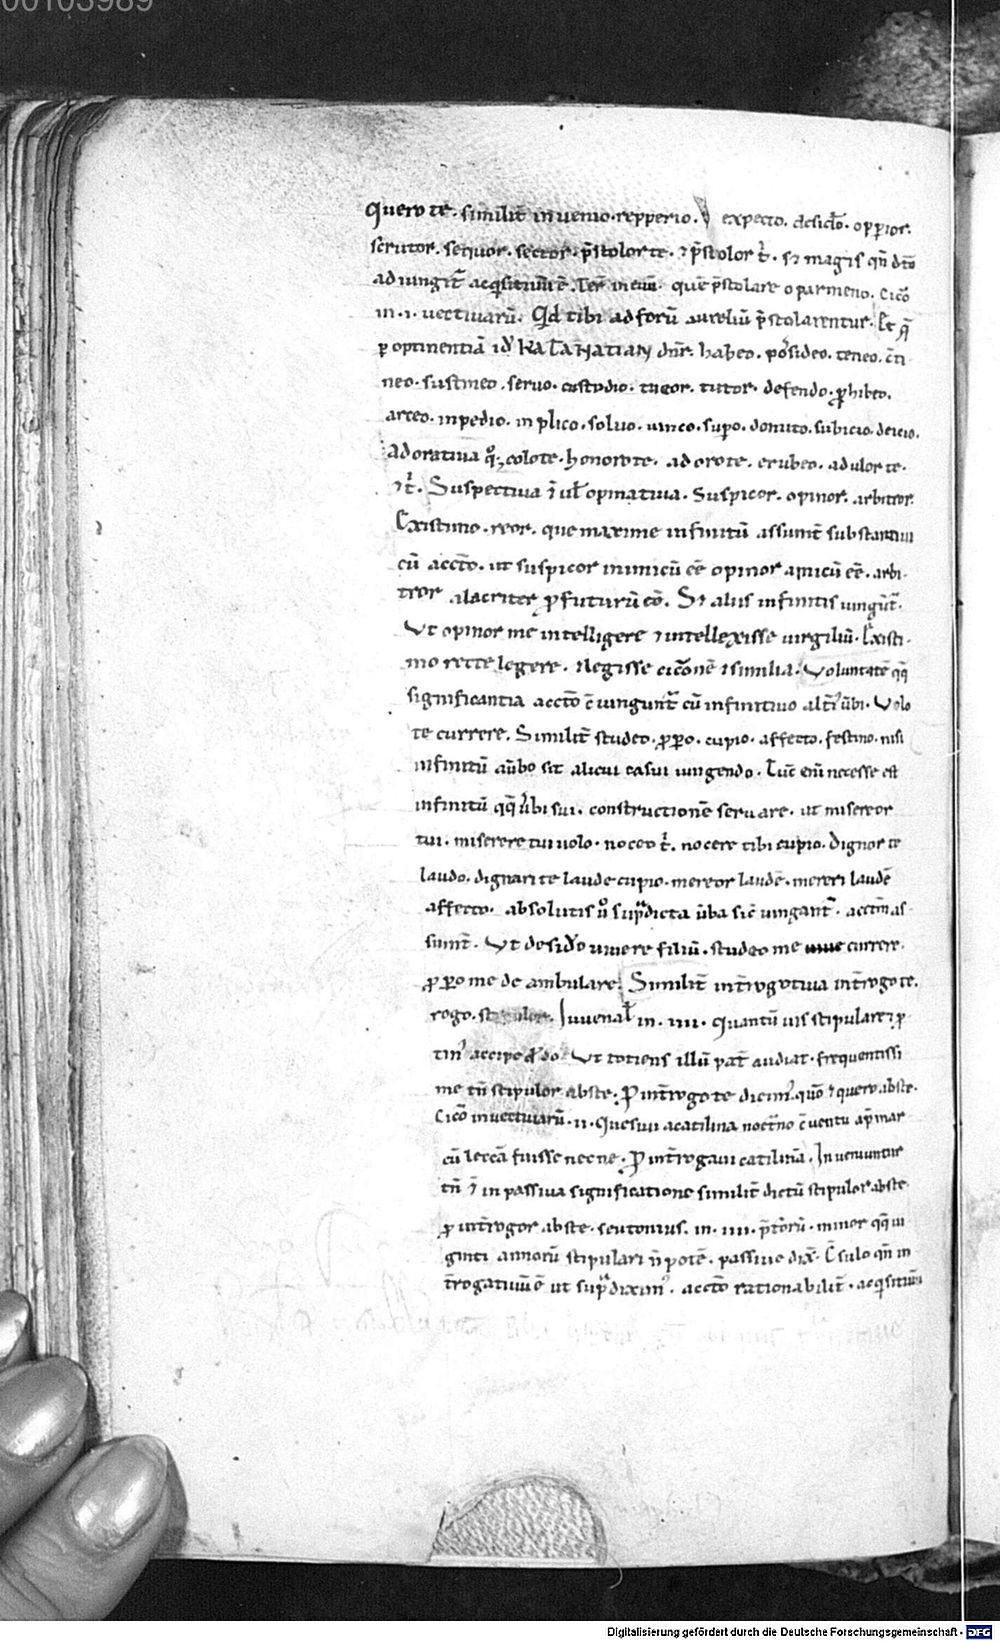 00103989
Quero te. similit̄ in uenio. repperio. expecto. desid̄o. opp̄ior.
scrutor. sequor. sector. p̄stolor te. ⁊ p̄stolor t̄. sꝫ magis qn̄ dt̄o
ad iungit̄ acq̇sitiuū ē. Teŕ in eun̄. quē p̄stolare o parmeno. cic̄o
in .i. uectiuarū. Qd̄ tibi ad forū aureliū p̄stolarentur. Et q̄
ꝑ optinentiā id᷎ dn̄r. habeo. possideo. teneo. c̄ti
neo. sustineo. seruo. custodio. tueor. tutor. defendo. ꝓhibeo.
arceo. inpedio. in plico. soluo. uinco. suꝑo. domito. subicio. deicio.
Adoratiua q̊ꝫ colo te. honoro te. ad oro te. erubeo. adulor te.
⁊ t̄. Suspectiua ł uł opinatiua. Suspicor. opinor. arbitror.
Existimo. reor. que maxime infinitū assumt̄ substantiui
cū acct̄o. ut suspicor inimicū eē opinor amicū eē. arbi-
tror alacriter ꝓfuturū eō. Sꝫ aliis infinitis iungūt̄.
Ut opinor me intelligere ⁊ intellexisse uirgiliū. Existi-
mo recte legere. ⁊ legisse cic̄onē ⁊ similia. Voluntatē qq̄
significantia acct̄o c̄ iungunt̄ cū infinitiuo alt̄i᷎ ūbi. Volo
te currere. Similit̄ studeo. ꝓꝑo. cupio. affecto. festino. nisi
infinitū aūbo sit alicui casui iungendo. Tūc enī necesse est
infinitū qq̄ ūbi sui. constructionē seruare. ut misereor
tui. miserere tui uolo. noceo t̄. nocere tibi cupio. Dignor te
laudo. dignari te laude cupio. mereor laudē. mereri laudē
affecto. absolutis ū sup̄dicta ūba sic iungant̄. acctm̄ as
sumt̄. Ut desid̄o uiuere filiū. studeo me currere.
ꝓꝑo me de ambulare. Similit̄ int̄rogatiua int̄rogo te.
rogo. stipulor. Juuenał in. iiii. Quantū uis stipulare ⁊ p
tin᷎ accipe qd̄ do. Ut totiens illū pat̄ audiat. frequentissi
me tn̄ stipulor abs te. ꝑ int̄rogo te dicim᷎. quō ⁊ quero abs te.
Cic̄o inuectiuarū. ii. Quesiui acatilina noct̄no c̄uentu ap̄ mar
cū leccā fuisse nec ne. ꝑ int̄rogaui catilinā. Inueniuntur
tn̄ ł in passiua significatione similit̄ dictū stipulor abs te
ꝑ int̄rogor abs te. seutonius. in. iiii. p̄torū. minor qq̄ ui
ginti annorū stipulari n̄ potē. passiue dix̄. Csulo qn̄ in
t̄rogatiuū ē ut sup̄ diximꝰ. acct̄o rationabilit̄. acq̇sitiuū
Digitalisierung gefördert durch die Deutsche Forschungsgemeinschaft - DFG